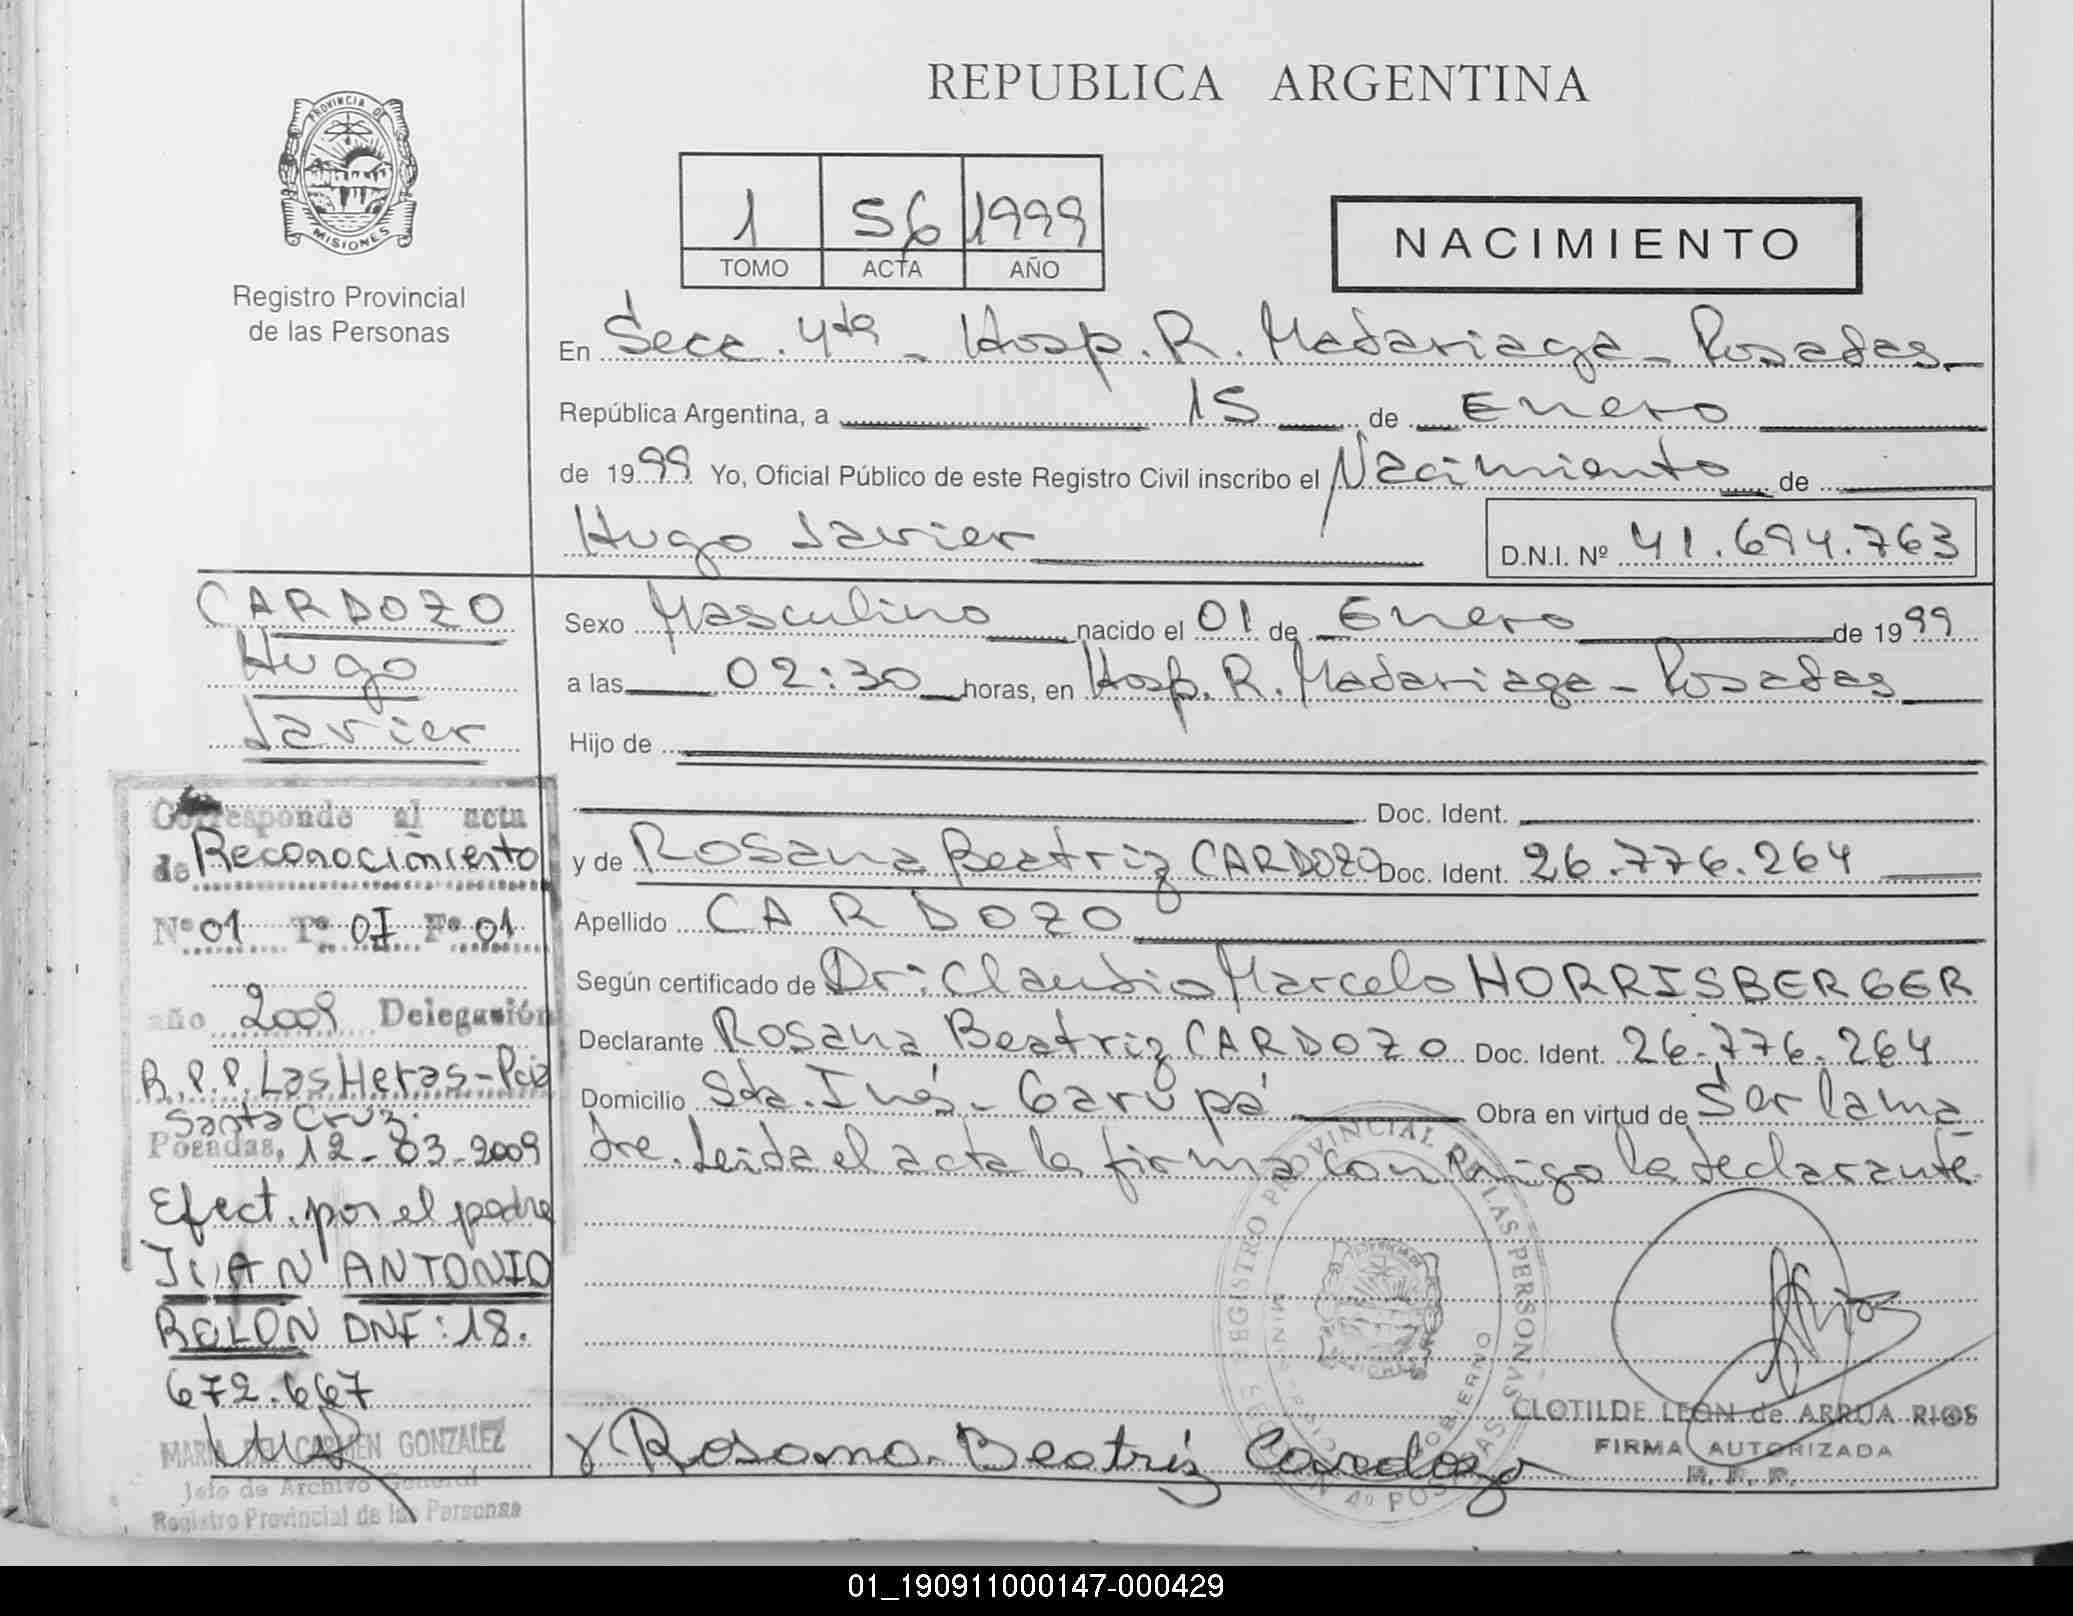 REPUBLICA ARGENTINA
PROVINCIA DE
MISIONES
Registro Provincial
de las Personas
1 56 1999
TOMO ACTA AÑO
NACIMIENTO
En Secc. 4ta - Hosp. R. Madariaga - Posadas
República Argentina, a 15 de Enero
de 1999 Yo, Oficial Público de este Registro Civil inscribo el Nacimiento de
Hugo Javier
D.N.I. Nº 41.694.763
CARDOZO
Hugo
Javier
Sexo Masculino nacido el 01 de Enero de 1999
a las 02:30 horas, en Hosp. R. Madariaga - Posadas
Hijo de
Doc. Ident.
y de Rosana Beatriz CARDOZO Doc. Ident. 26.776.264
Apellido CARDOZO
Según certificado de Dr: Claudio Marcelo HORRISBERGER
Declarante Rosana Beatriz CARDOZO Doc. Ident. 26.776.264
Domicilio Sta. Inés - Garupá Obra en virtud de Ser la ma
dre. Leida el acta la firma conmigo la declarante.
Corresponde al acta
de Reconocimiento
Nº 01 Tº 01 Fº 01
año 2009 Delegación
R.P.P. Las Heras - Pcia
Santa Cruz.
Posadas, 12-03-2009
Efect. por el padre
JUAN ANTONIO
BELON DNI: 18.
672.667
MARIA DEL CARMEN GONZALEZ
Jefe de Archivo General
Registro Provincial de las Personas
REGISTRO PROVINCIAL DE LAS PERSONAS
CLOTILDE LEON de ARRUA RIOS
FIRMA AUTORIZADA
R. P. P.
Rosana Beatriz Cardozo
01_190911000147-000429